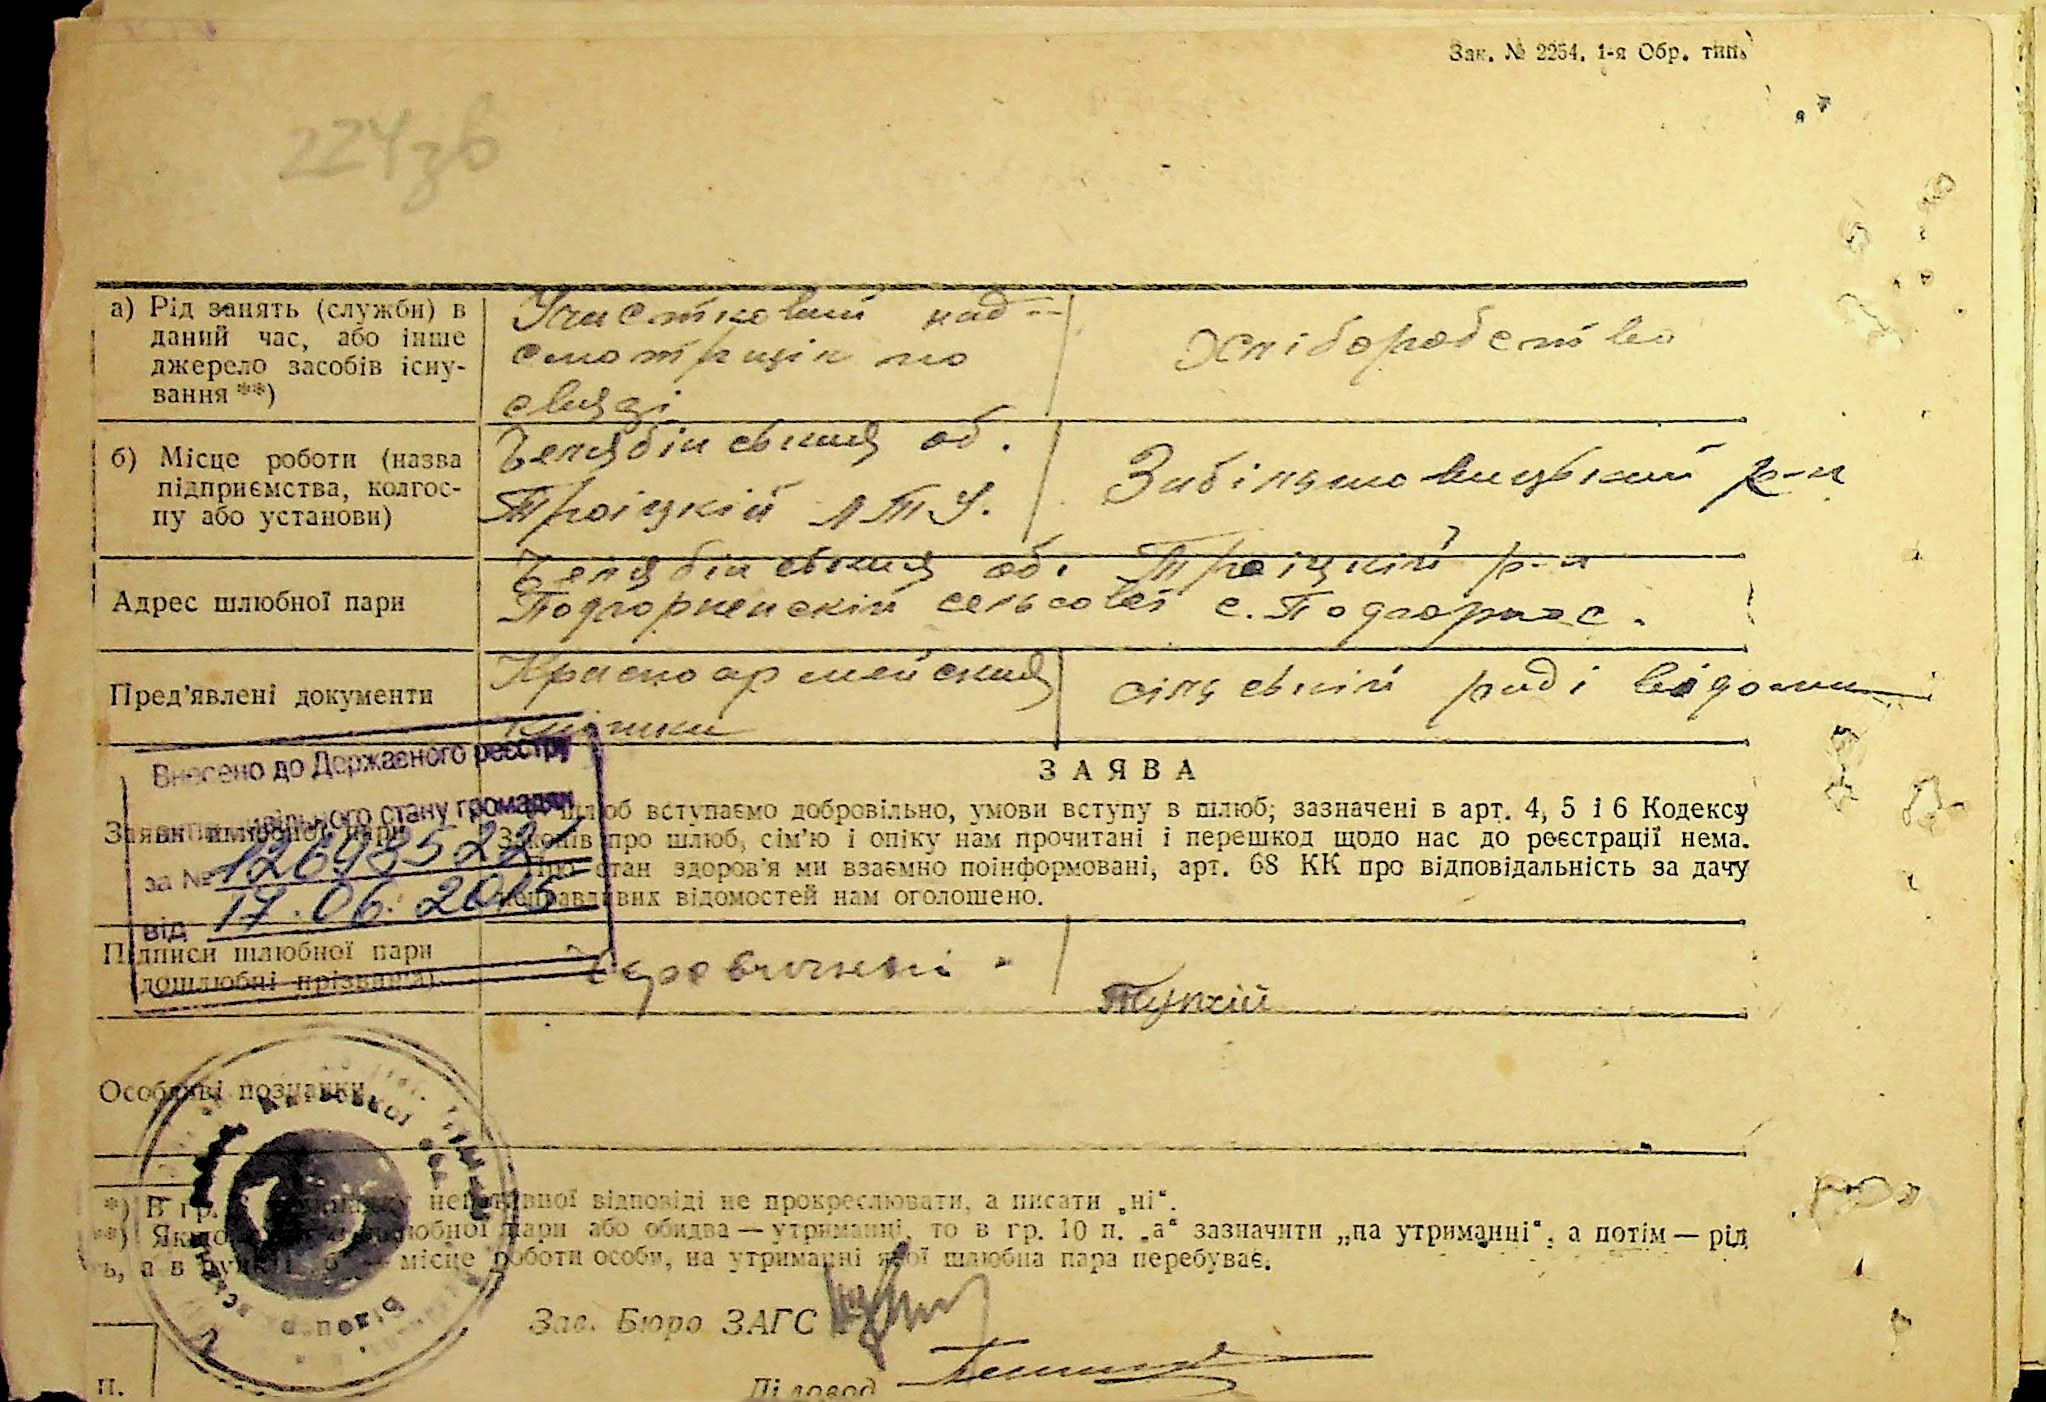 Зак. № 2254. 1-я Обр. тип.
224зв
а) Рід занять (служби) в
даний час, або інше
джерело засобів існу-
вання **)
Участковий над-
смотрщік по
связі
хліборобство
б) Місце роботи (назва
підприємства, колгос-
пу або установи)
Челябінськия об.
Троіцкій ЛТУ.
р-н
Адрес шлюбної пари
Челябінськия об. Троіцкій р-н
Подгорненскій сельсовет с. Подгорное.
Пред'явлені документи
Красноармейския
книжки
сільській раді відоми
ЗАЯВА
Заяви шлюбної пари
шлюб вступаємо добровільно, умови вступу в шлюб, зазначені в арт. 4, 5 і 6 Кодексу
Законів про шлюб, сім'ю і опіку нам прочитані і перешкод щодо нас до реєстрації нема.
Про стан здоров'я ми взаємно поінформовані, арт. 68 КК про відповідальність за дачу
неправдивих відомостей нам оголошено.
Внесено до Державного реєстру
цивільного стану громадян
за №
від 17.06.2015
Підписи шлюбної пари
(дошлюбні прізвища)
Особливі познаки
*) В гр. негативної відповіді не прокреслювати, а писати „ні“.
**) Якщо шлюбної пари або обидва — утриманці, то в гр. 10 п. „а“ зазначити „на утриманні“, а потім — рід
ь, а в пункті „б“ — місце роботи особи, на утриманні якої шлюбна пара перебуває.
Зав. Бюро ЗАГС
Діловод
П.